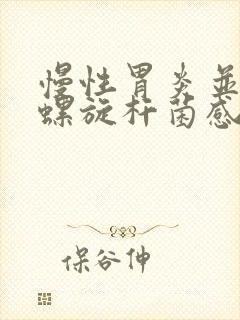 慢性胃炎並
螺旋杆菌感
保谷伸